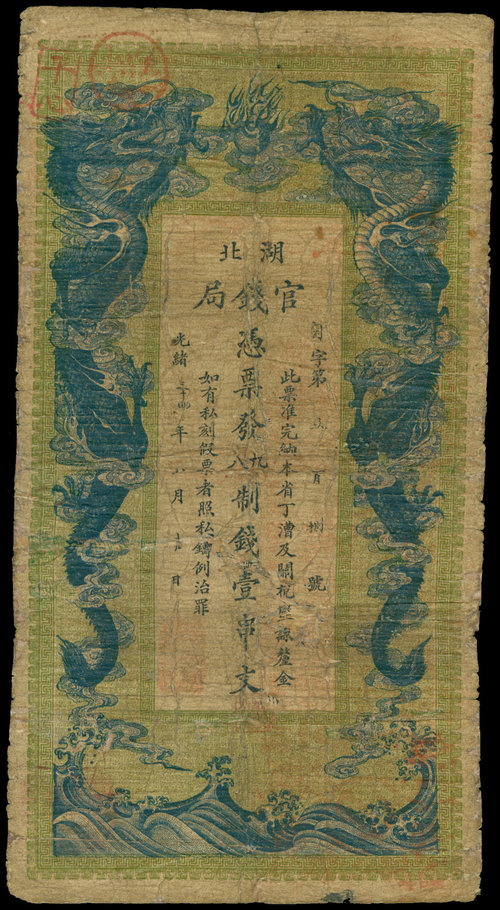 湖北
官錢局
憑票發九八制錢壹串文
字第 百捌號
此票准完納本省丁漕及關稅鹽課釐金
如有私刻假票者照私鑄例治罪
光緒三十四年八月 日